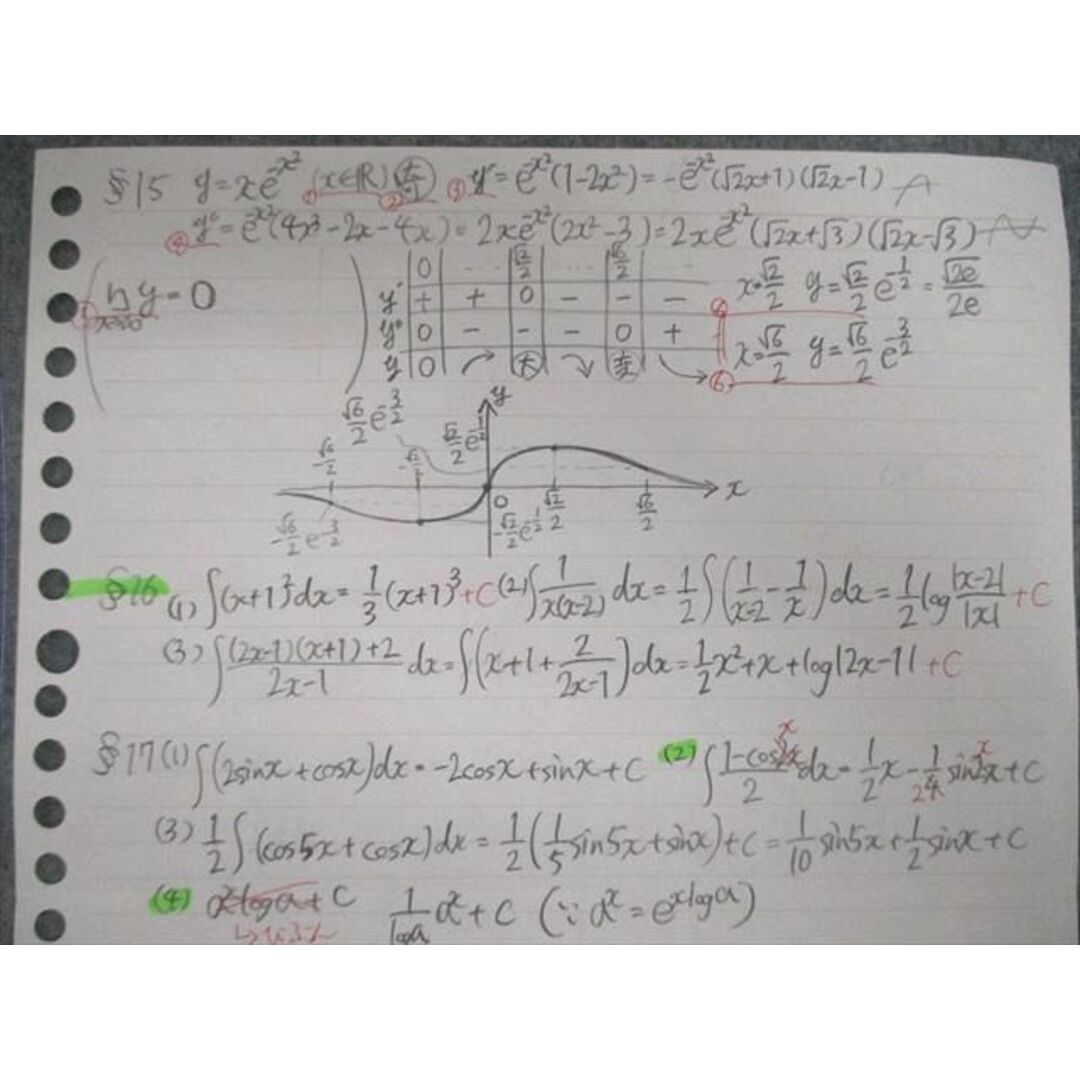 §15 y=xe^{-x²} (x∈ℝ) ① ② 奇 ③ y'=e^{-x²}(1-2x²)=-e^{-x²}(√2x+1)(√2x-1)
④ y''=e^{-x²}(4x³-2x-4x)=2xe^{-x²}(2x²-3)=2xe^{-x²}(√2x+√3)(√2x-√3)
(lim_{x→∞} y=0)
0 … √2/2 … √6/2 …
y' + + 0 - - -
y'' 0 - - - 0 +
y 0 大 変
x=√2/2 y=√2/2 e^{-1/2}=√(2e)/2e
x=√6/2 y=√6/2 e^{-3/2}
y
√6/2 e^{-3/2} √2/2 e^{-1/2}
-√6/2 -√2/2 0 √2/2 √6/2 x
-√6/2 e^{-3/2} -√2/2 e^{-1/2}
§16 (1) ∫(x+1)²dx=1/3(x+1)³+C (2) ∫1/(x(x-2))dx=1/2∫(1/(x-2)-1/x)dx=1/2 log|x-2|/|x|+C
(3) ∫((2x-1)(x+1)+2)/(2x-1)dx=∫(x+1+2/(2x-1))dx=1/2x²+x+log|2x-1|+C
§17 (1) ∫(2sinx+cosx)dx=-2cosx+sinx+C (2) ∫(1-cosx)/2 dx=1/2x-1/2 sinx+C
(3) 1/2∫(cos5x+cosx)dx=1/2(1/5 sin5x+sinx)+C=1/10 sin5x+1/2 sinx+C
(4) a^x loga+C 1/loga a^x+C (∵a^x=e^{xloga})